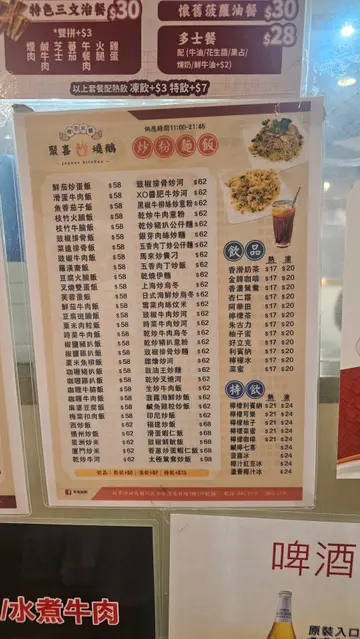 特色三文治餐 $30
*雙拼+$3
懷舊菠蘿油餐 $30
多士餐 $28
配 (牛油/花生醬/果占/煉奶/鮮牛油+$2)
以上套餐配熱飲 凍飲+$3 特飲+$7
聚喜 燒鵝
供應時間11:00-21:45
炒粉麵飯
鮮茄炒蛋飯 $58
滑蛋牛肉飯 $58
魚香茄子飯 $58
枝竹火腩飯 $58
枝竹牛腩飯 $58
豉椒排骨飯 $58
菜遠排骨飯 $58
菜遠牛肉飯 $58
羅漢齋飯 $58
豆腐火腩飯 $58
叉燒雙蛋飯 $58
芙蓉蛋飯 $58
鮮茄牛肉飯 $58
豆腐斑腩飯 $58
粟米肉粒飯 $58
時菜牛肉飯 $58
椒鹽豬扒飯 $58
椒鹽雞扒飯 $58
粟米魚柳飯 $58
咖喱豬扒飯 $58
咖喱雞扒飯 $58
咖喱牛腩飯 $58
咖喱牛肉飯 $58
麻婆豆腐飯 $58
梅菜扣肉飯 $58
西炒飯 $58
揚州炒飯 $58
星洲炒米 $58
廈門炒米 $58
乾炒牛河 $58
豉椒排骨炒河 $62
XO醬肥牛炒河 $62
黑椒牛柳絲炒意粉 $62
乾炒牛肉意粉 $62
乾炒豬扒公仔麵 $62
銀芽肉絲炒麵 $62
五香肉丁炒公仔麵 $62
馬來炒貴刁 $62
五香肉丁炒飯 $62
乾燒伊麵 $62
上海炒烏冬 $62
日式海鮮炒烏冬 $62
雪菜肉絲炆米 $62
豉椒牛肉炒河 $62
時菜牛肉炒河 $62
乾炒牛肉烏冬 $62
乾炒豬扒意粉 $62
豉椒排骨炒麵 $62
擂燴炒河 $62
豉油王炒麵 $62
乾炒叉燒河 $62
生炒牛肉飯 $62
菠蘿海鮮炒飯 $62
鹹魚雞粒炒飯 $62
印尼炒飯 $62
福建炒飯 $68
滑蛋蝦仁飯 $68
豉椒鮮魷飯 $68
香蔥炒蛋蝦仁飯 $68
太極鴛鴦炒飯 $98
飲品 熱 凍
香滑奶茶 $17 $20
金牌咖啡 $17 $20
香濃鴛鴦 $17 $20
杏仁霜 $17 $20
阿華田 $17 $20
檸檬茶 $17 $20
朱古力 $17 $20
柚子蜜 $17 $20
好立克 $17 $20
利賓納 $17 $20
檸檬水 $17 $20
菜蜜 $17 $20
特飲 熱 凍
檸檬利賓納 $21 $24
檸檬可樂 $21 $24
檸檬柚子 $21 $24
檸檬菜蜜 $21 $24
檸檬咖啡 $21 $24
鹹檸七喜 $24
菠蘿冰 $24
椰汁紅豆冰 $24
蘆薈椰汁冰 $24
/水煮牛肉
啤酒
原裝入口